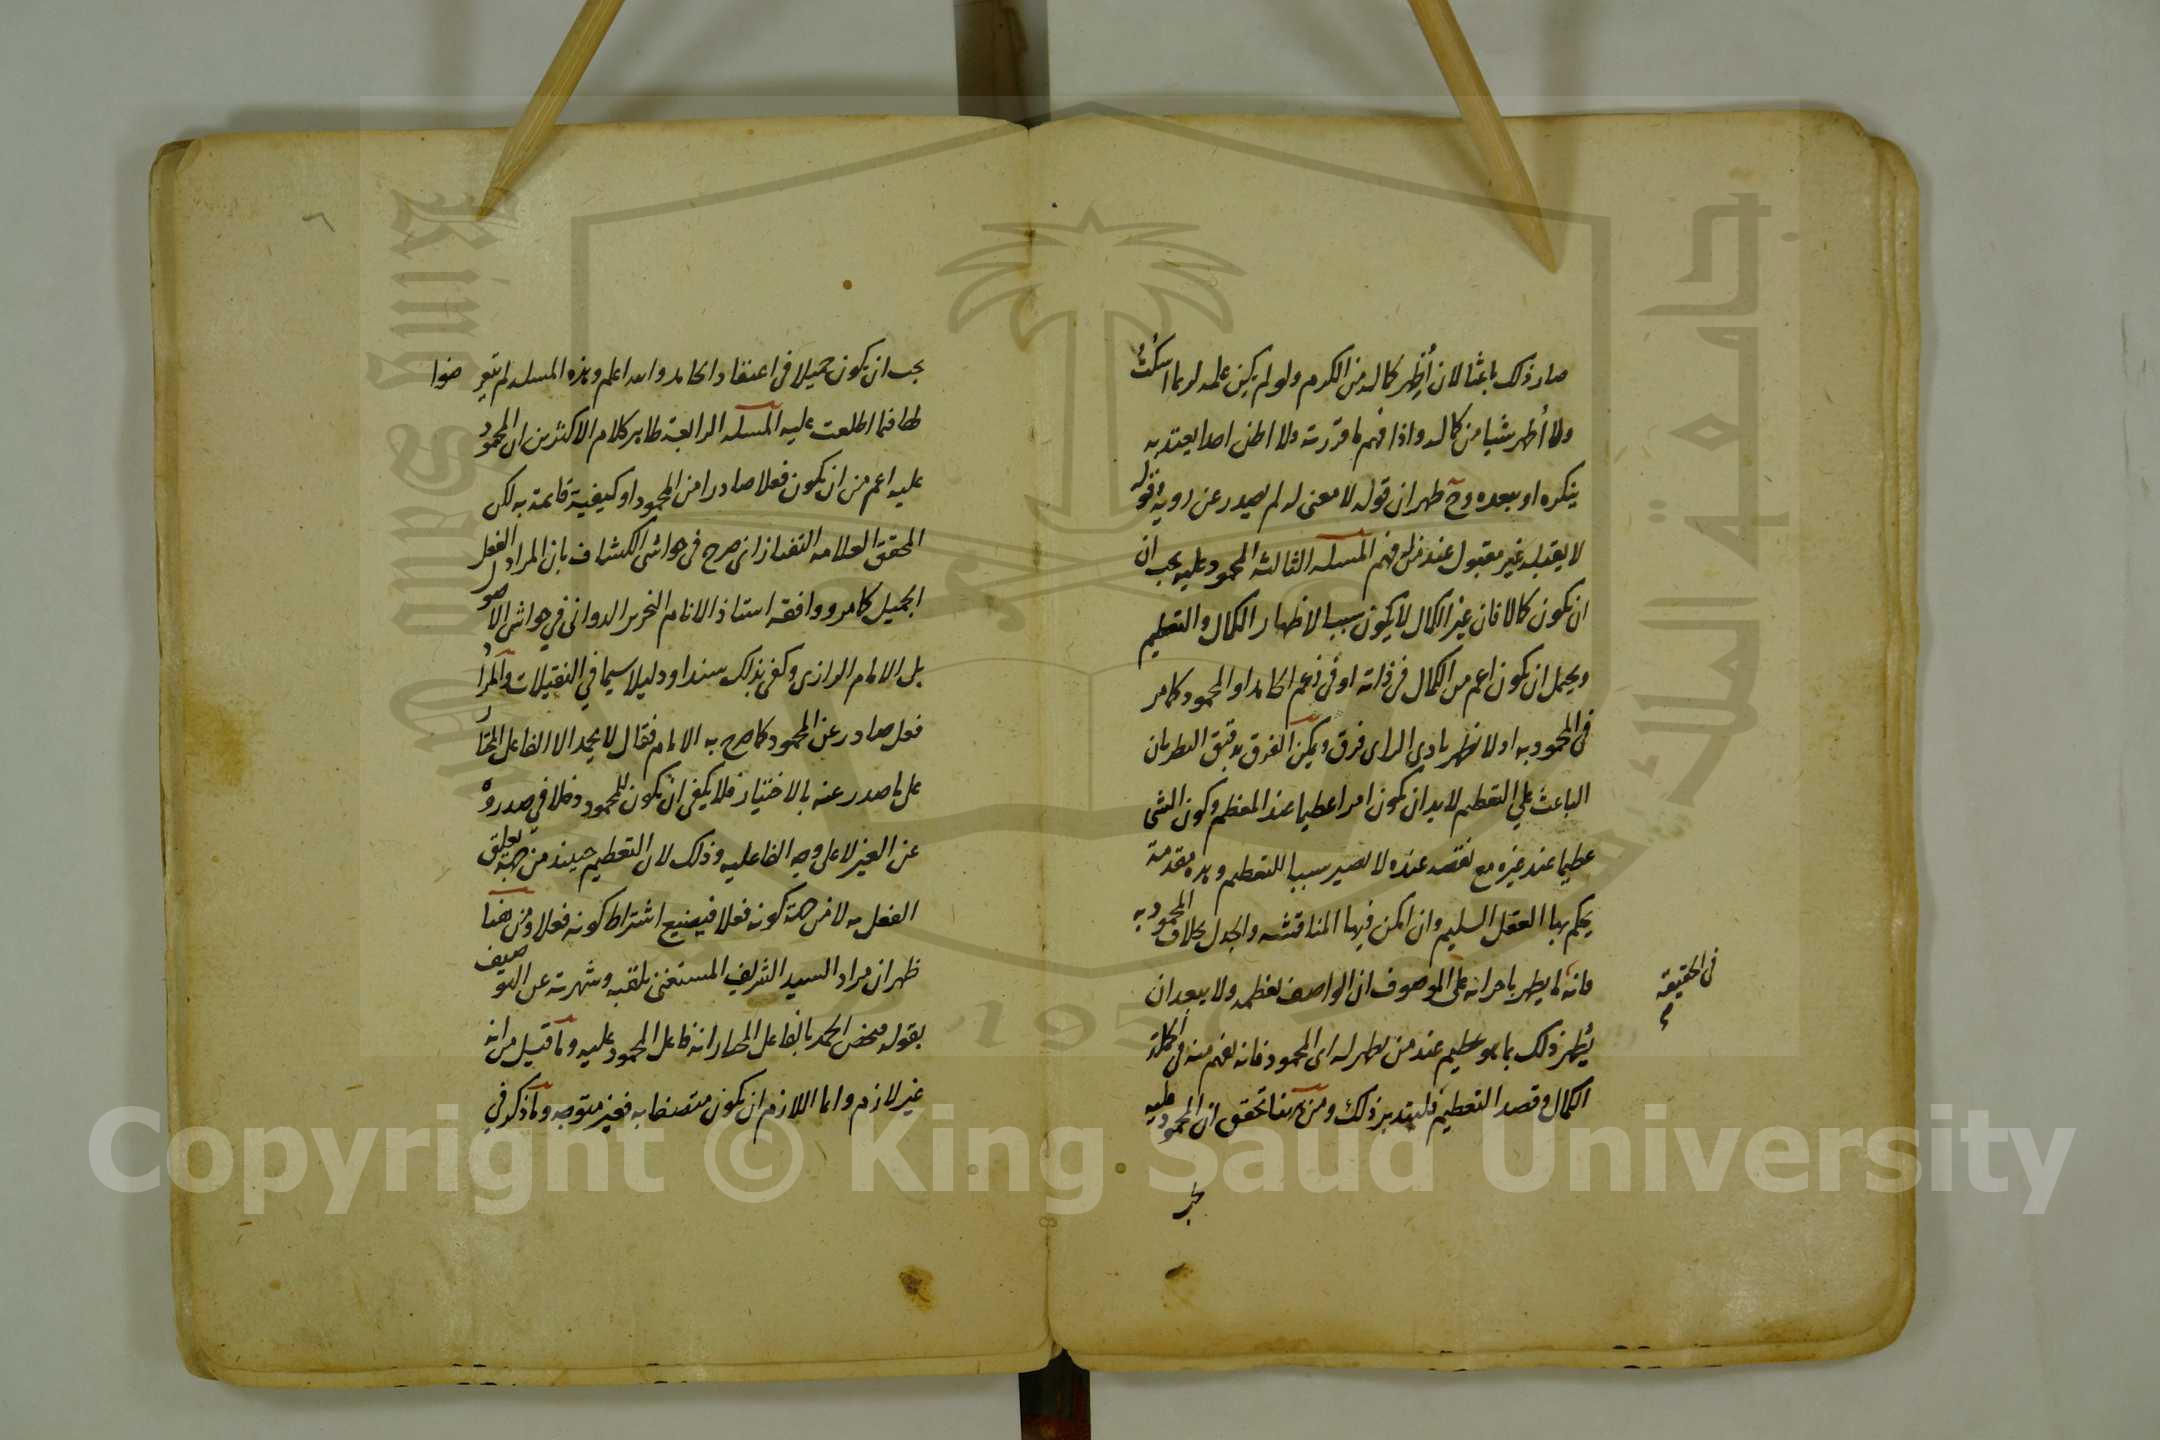 صار ذلك باعثا لان أُظهر كماله من الكرم ولو لم يكن علمه لربما اسكتُ
ولما أُظهر شيا من كماله واذا فهم ما قررته ولا اظن احدا يعتد به
ينكره او يبعده وح ظهر ان قوله لا معنى له لم يصدر عن روية وقوله
لا يقبله غير مقبول عند من له فهم المسلة الثالثة المحمود عليه يجب ان
ان يكون كمالا فان غير الكمال لا يكون سببا لاظهار الكمال والتعظيم
ويحمل ان يكون اعم من الكمال في ذاته او في زعم الحامد او المحمود كما مر
في المحمود به اولا نظهر بادى الراى فرق ويمكن الفرق بدقيق النظر بان
الباعث على التعظيم لا بد ان يكون امرا عظيما عند المعظم وكون الشى
عظيما عند غيره مع نقصه عنده لا يصير سببا للتعظيم وهذه مقدمة
يحكم بها العقل السليم وان امكن فيها المناقشه والجدل بخلاف المحمود به
فانه لما يظهر باجرائه على الموصوف ان الواصف يعظمه ولا يبعد ان
في الحقيقه
م
يُظهر ذلك بما هو عظيم عند من يظهر له اى المحمود فانه يفهم منه في الجملة
الكمال وقصد التعظيم فليتدبر ذلك ومن ههنا تحقق ان المحمود عليه
يجب
٦
يجب ان يكون جميلا في اعتقاد الحامد والله اعلم وهذه المسله لم يتعر ضوا
لها فيما اطلعت عليه المسلة الرابعة ظاهر كلام الاكثرين ان المحمود
عليه اعم من ان يكون فعلا صادرا من المحمود او كيفية قائمة به لكن
المحقق العلامه التفتازانى صرح في حواشى الكشاف بان المراد الفعل
الجميل كما مر ووافقه استاذ الانام النحرير الدوانى في حواشى الاصول
بل الامام الرازى وكفى بذلك سندا ودليلا سيما في النقليات والمراد
فعل صادر عن المحمود كما صرح به الامام فقال لا يحمد الا الفاعل المختار
على ما صدر عنه بالاختيار فلا يكفى ان يكون للمحمود دخلا في صدروه
عن الغير لا على وجه الفاعليه وذلك لان التعظيم حينئذ من جهة تعلق
الفعل به لا من جهة كونه فعلا فيضيع اشتراط كونه فعلا ومن هنا
ظهر ان مراد السيد الشريف المستغنى بلقبه وشهرته عن التوصيف
بقوله يختص الحمد بالفاعل المختار انه فاعل المحمود عليه وما قيل من انه
غير لازم وانما اللازم ان يكون متصفا به فغير متوجه وما ذكر في
Copyright © King Saud University
King Saud University
جامعة الملك سعود
1957